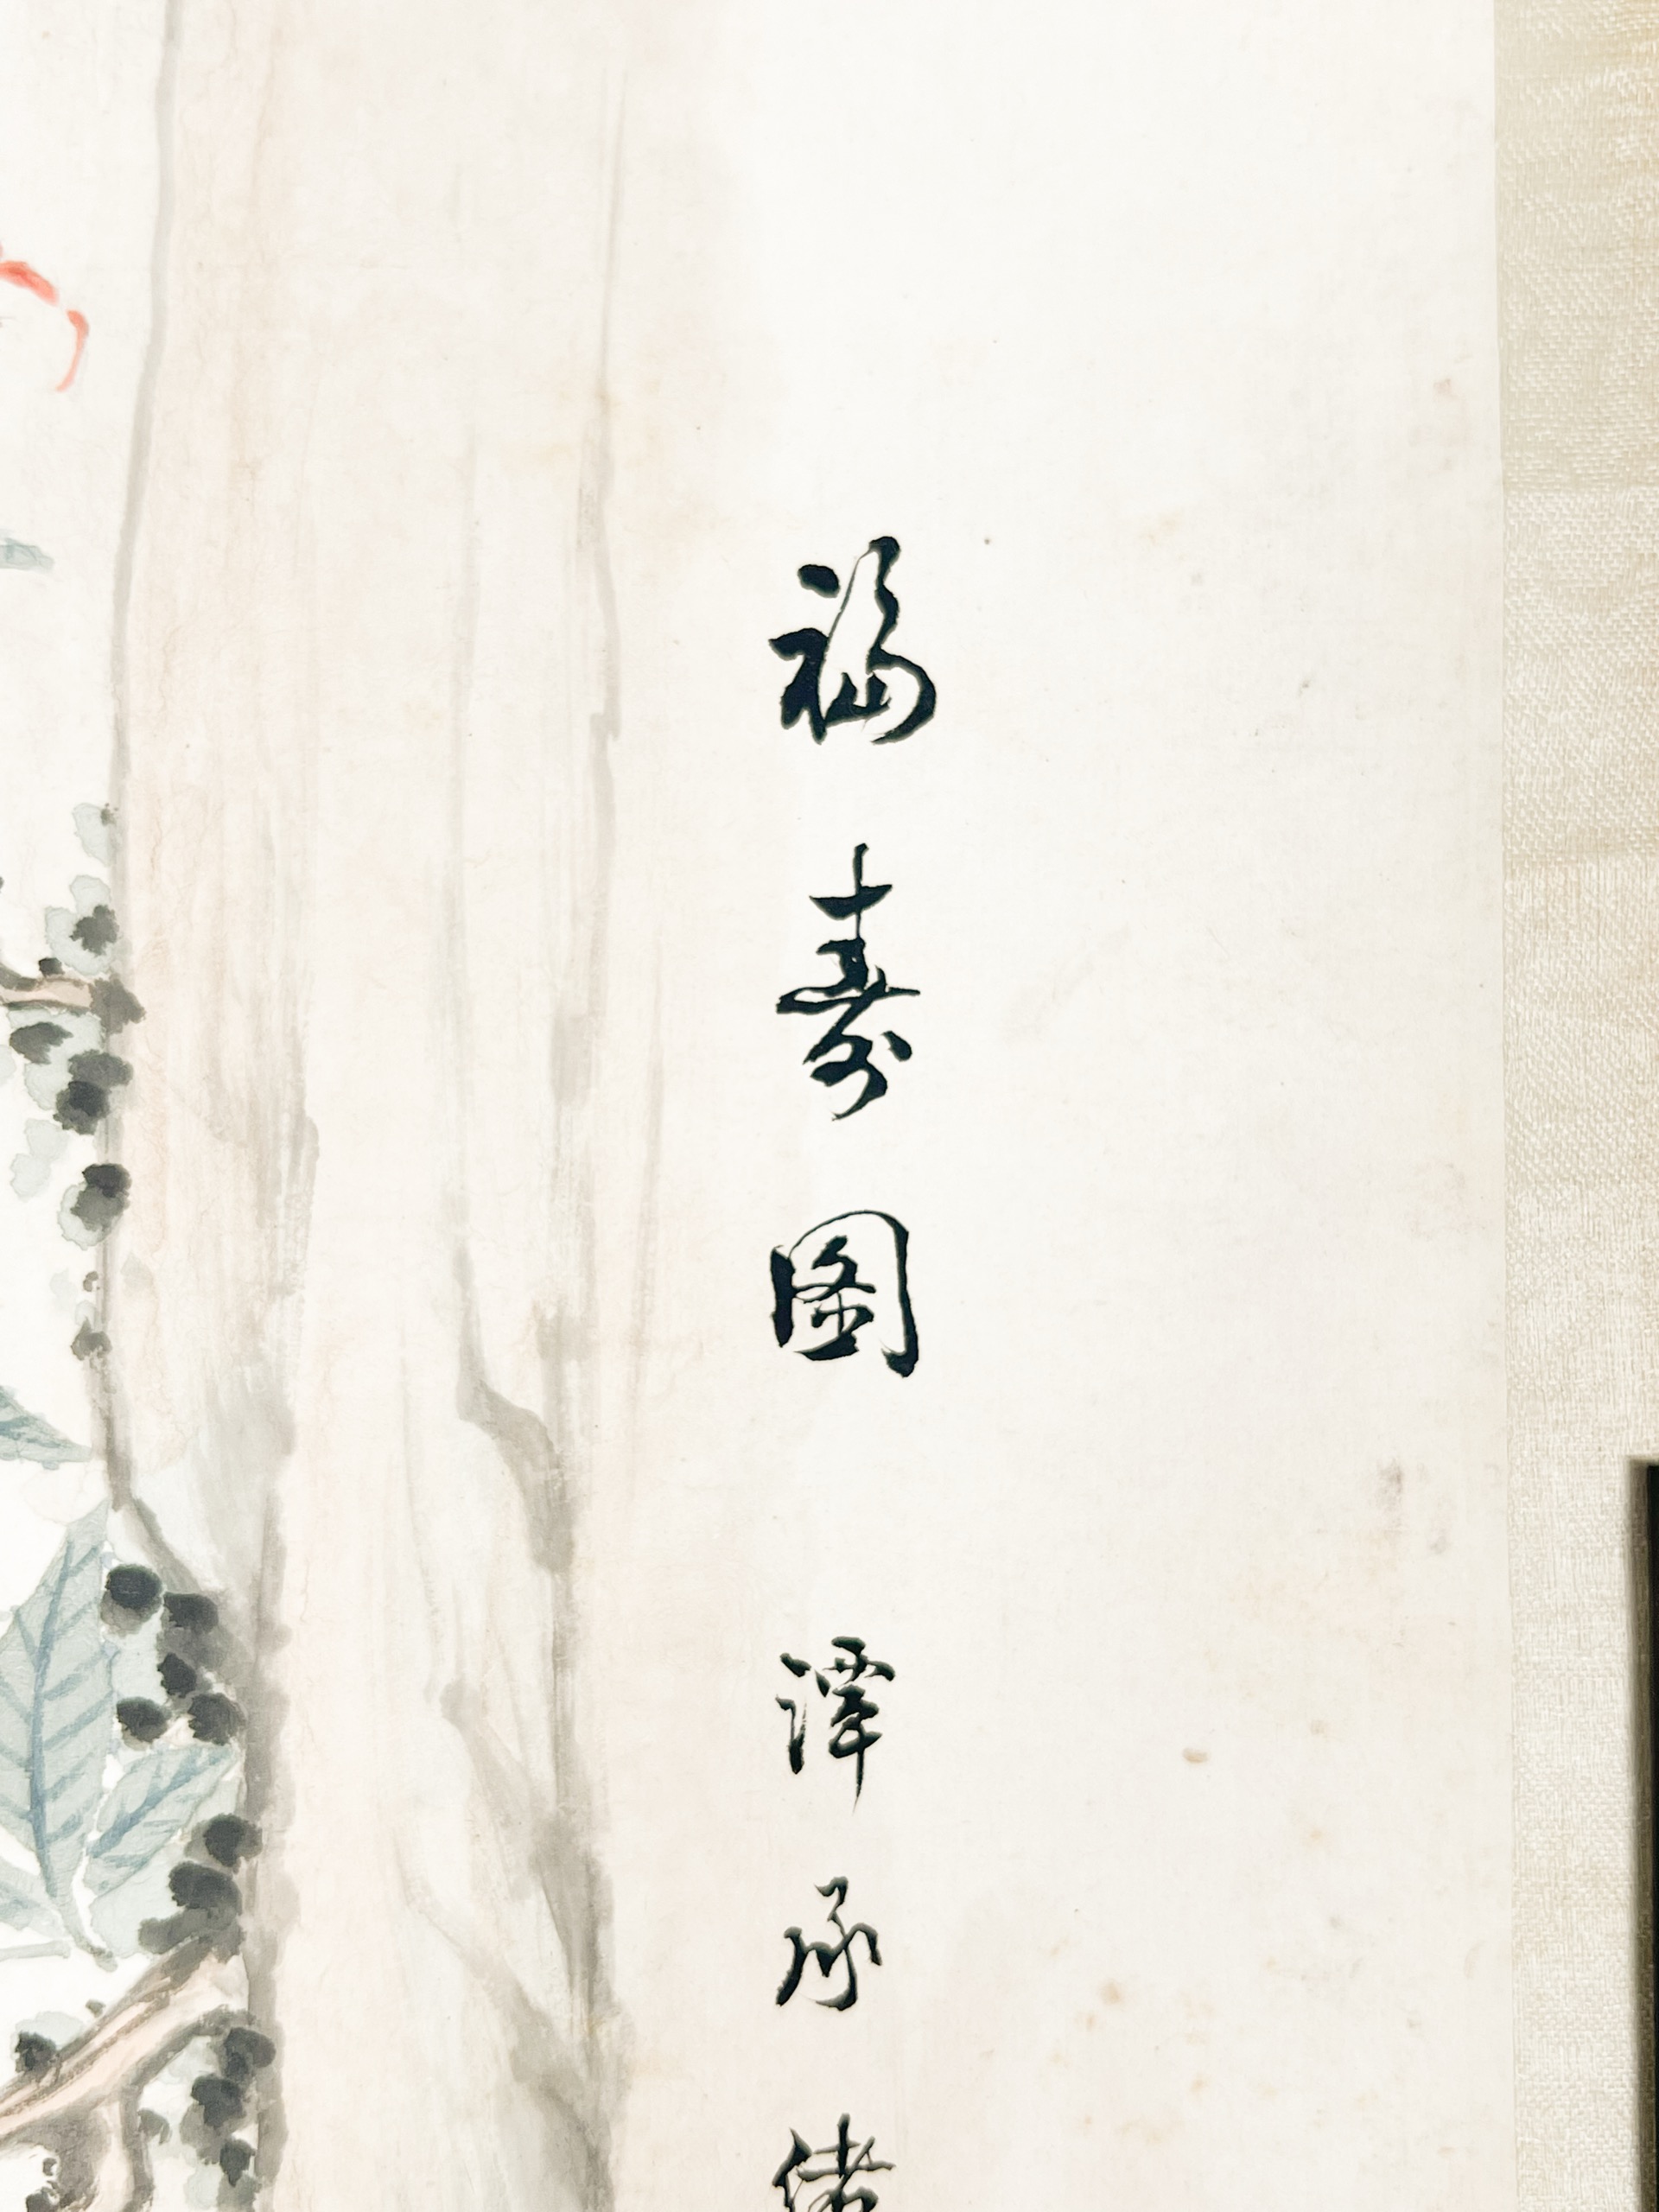 福壽圖 潭承